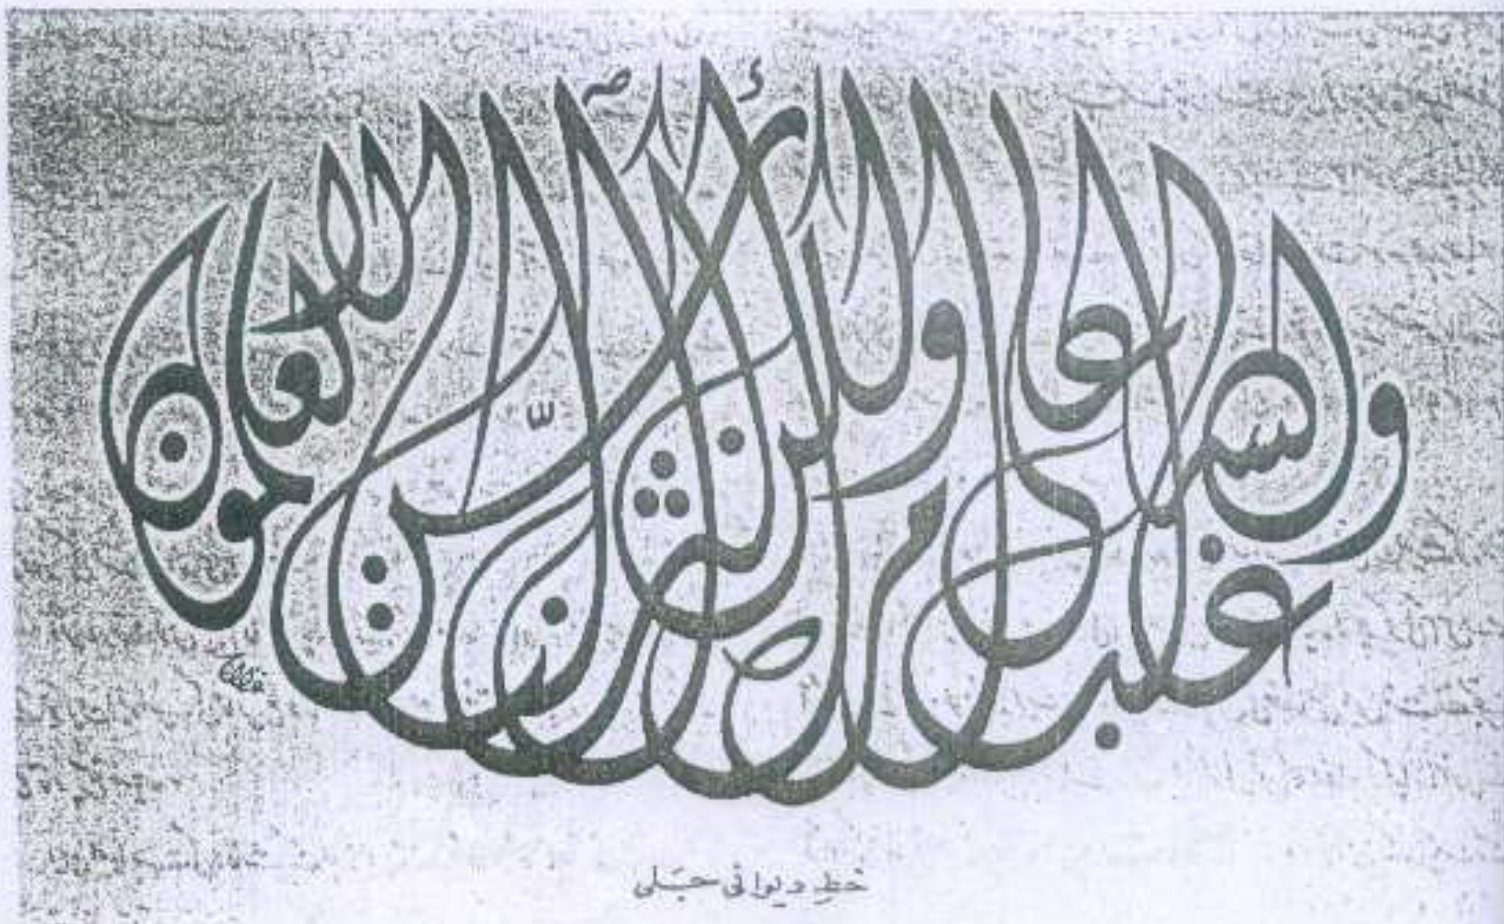 والله غالب على أمره ولكن أكثر الناس لا يعلمون
خط ديوانى جلى